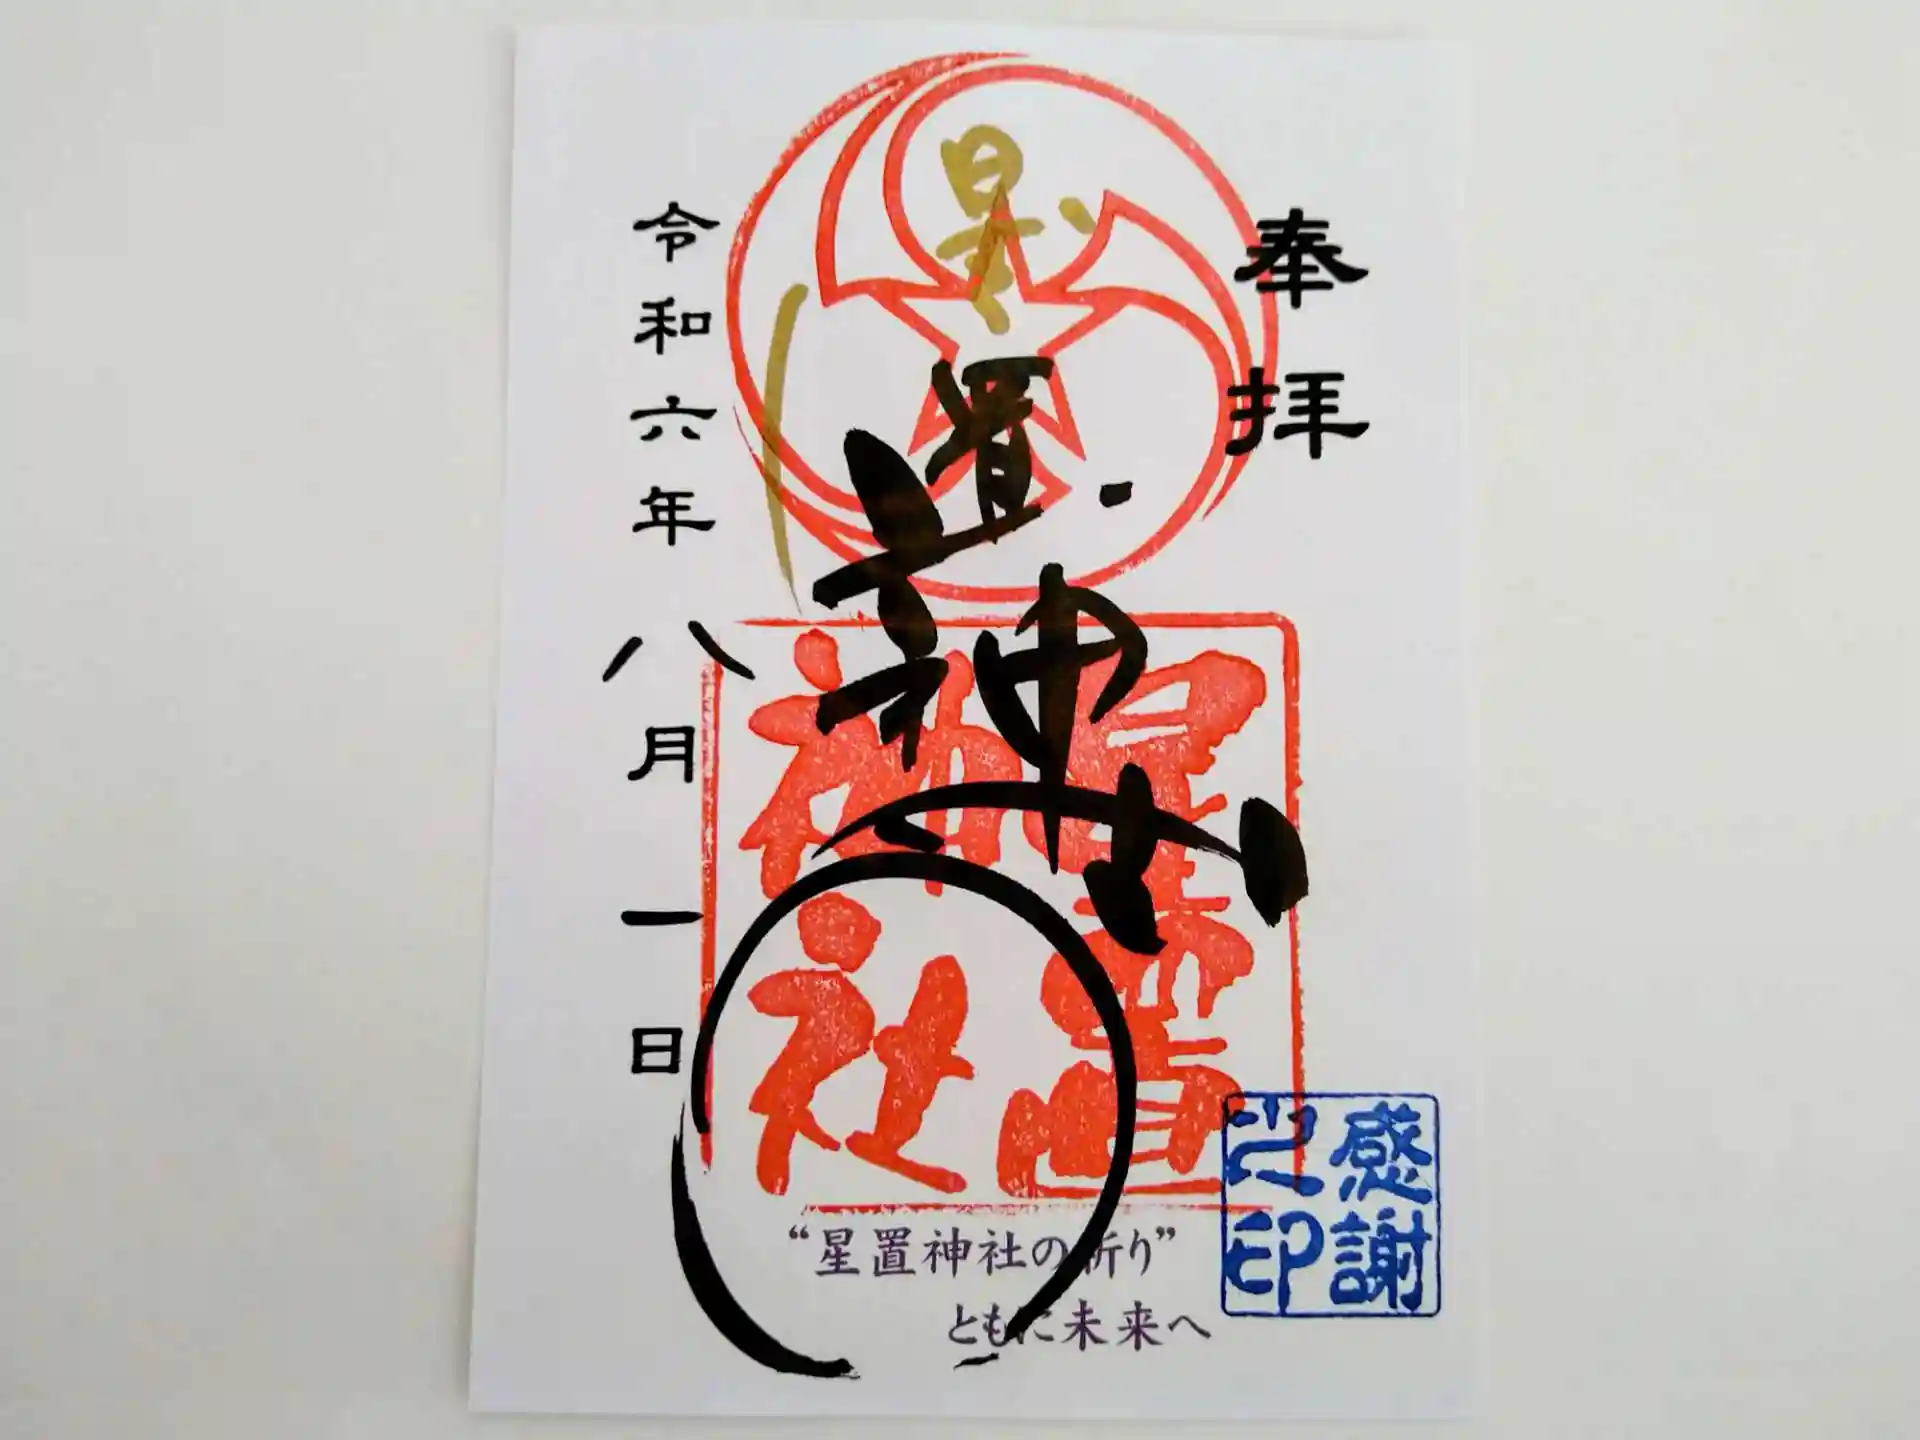 奉拝
星置神社
星置
神社
令和六年八月一日
感謝
之印
“星置神社の祈り”
ともに未来へ